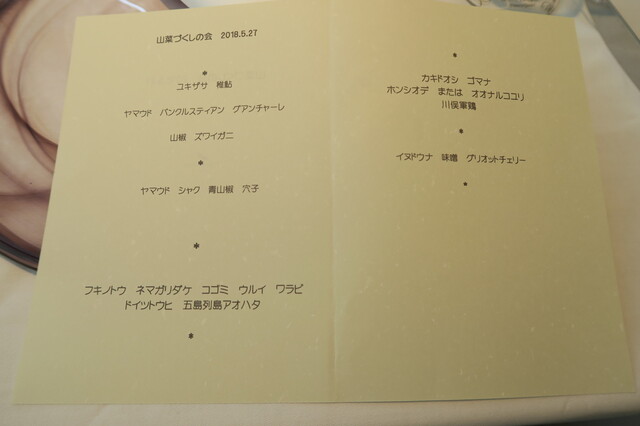 山菜づくしの会 2018.5.27
*
ユキザサ 稚鮎
ヤマウド パンクルスティアン グアンチャーレ
山椒 ズワイガニ
*
ヤマウド シャク 青山椒 穴子
*
フキノトウ ネマガリダケ コゴミ ウルイ ワラビ
ドイツトウヒ 五島列島アオハタ
*
*
カキドオシ ゴマナ
ホンシオデ または オオナルコユリ
川俣軍鶏
*
イヌドウナ 味噌 グリオットチェリー
*